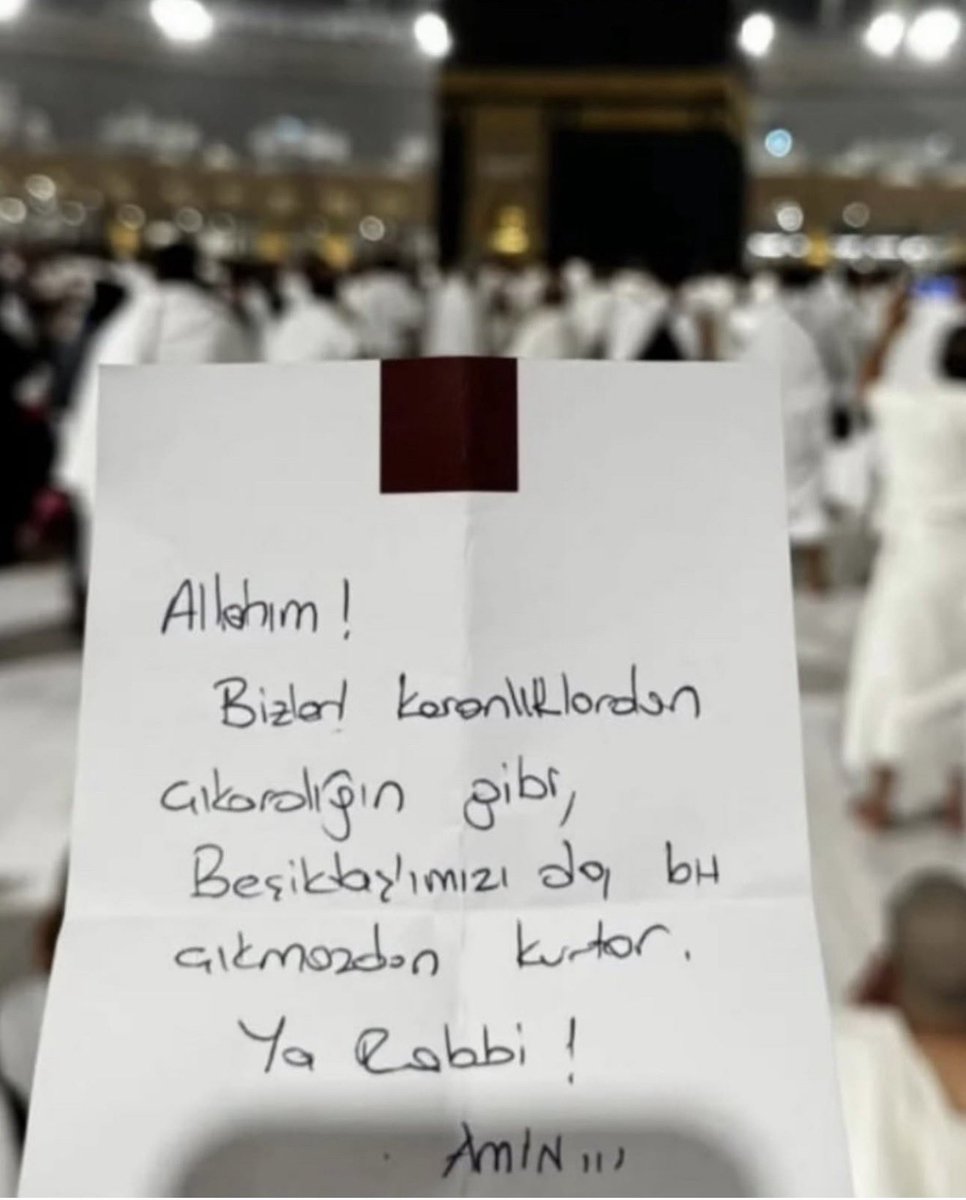 Allahım!
Bizleri karanlıklardan
çıkardığın gibi,
Beşiktaş'ımızı da, bu
çıkmazdan kurtar.
Ya Rabbi!
AMİN